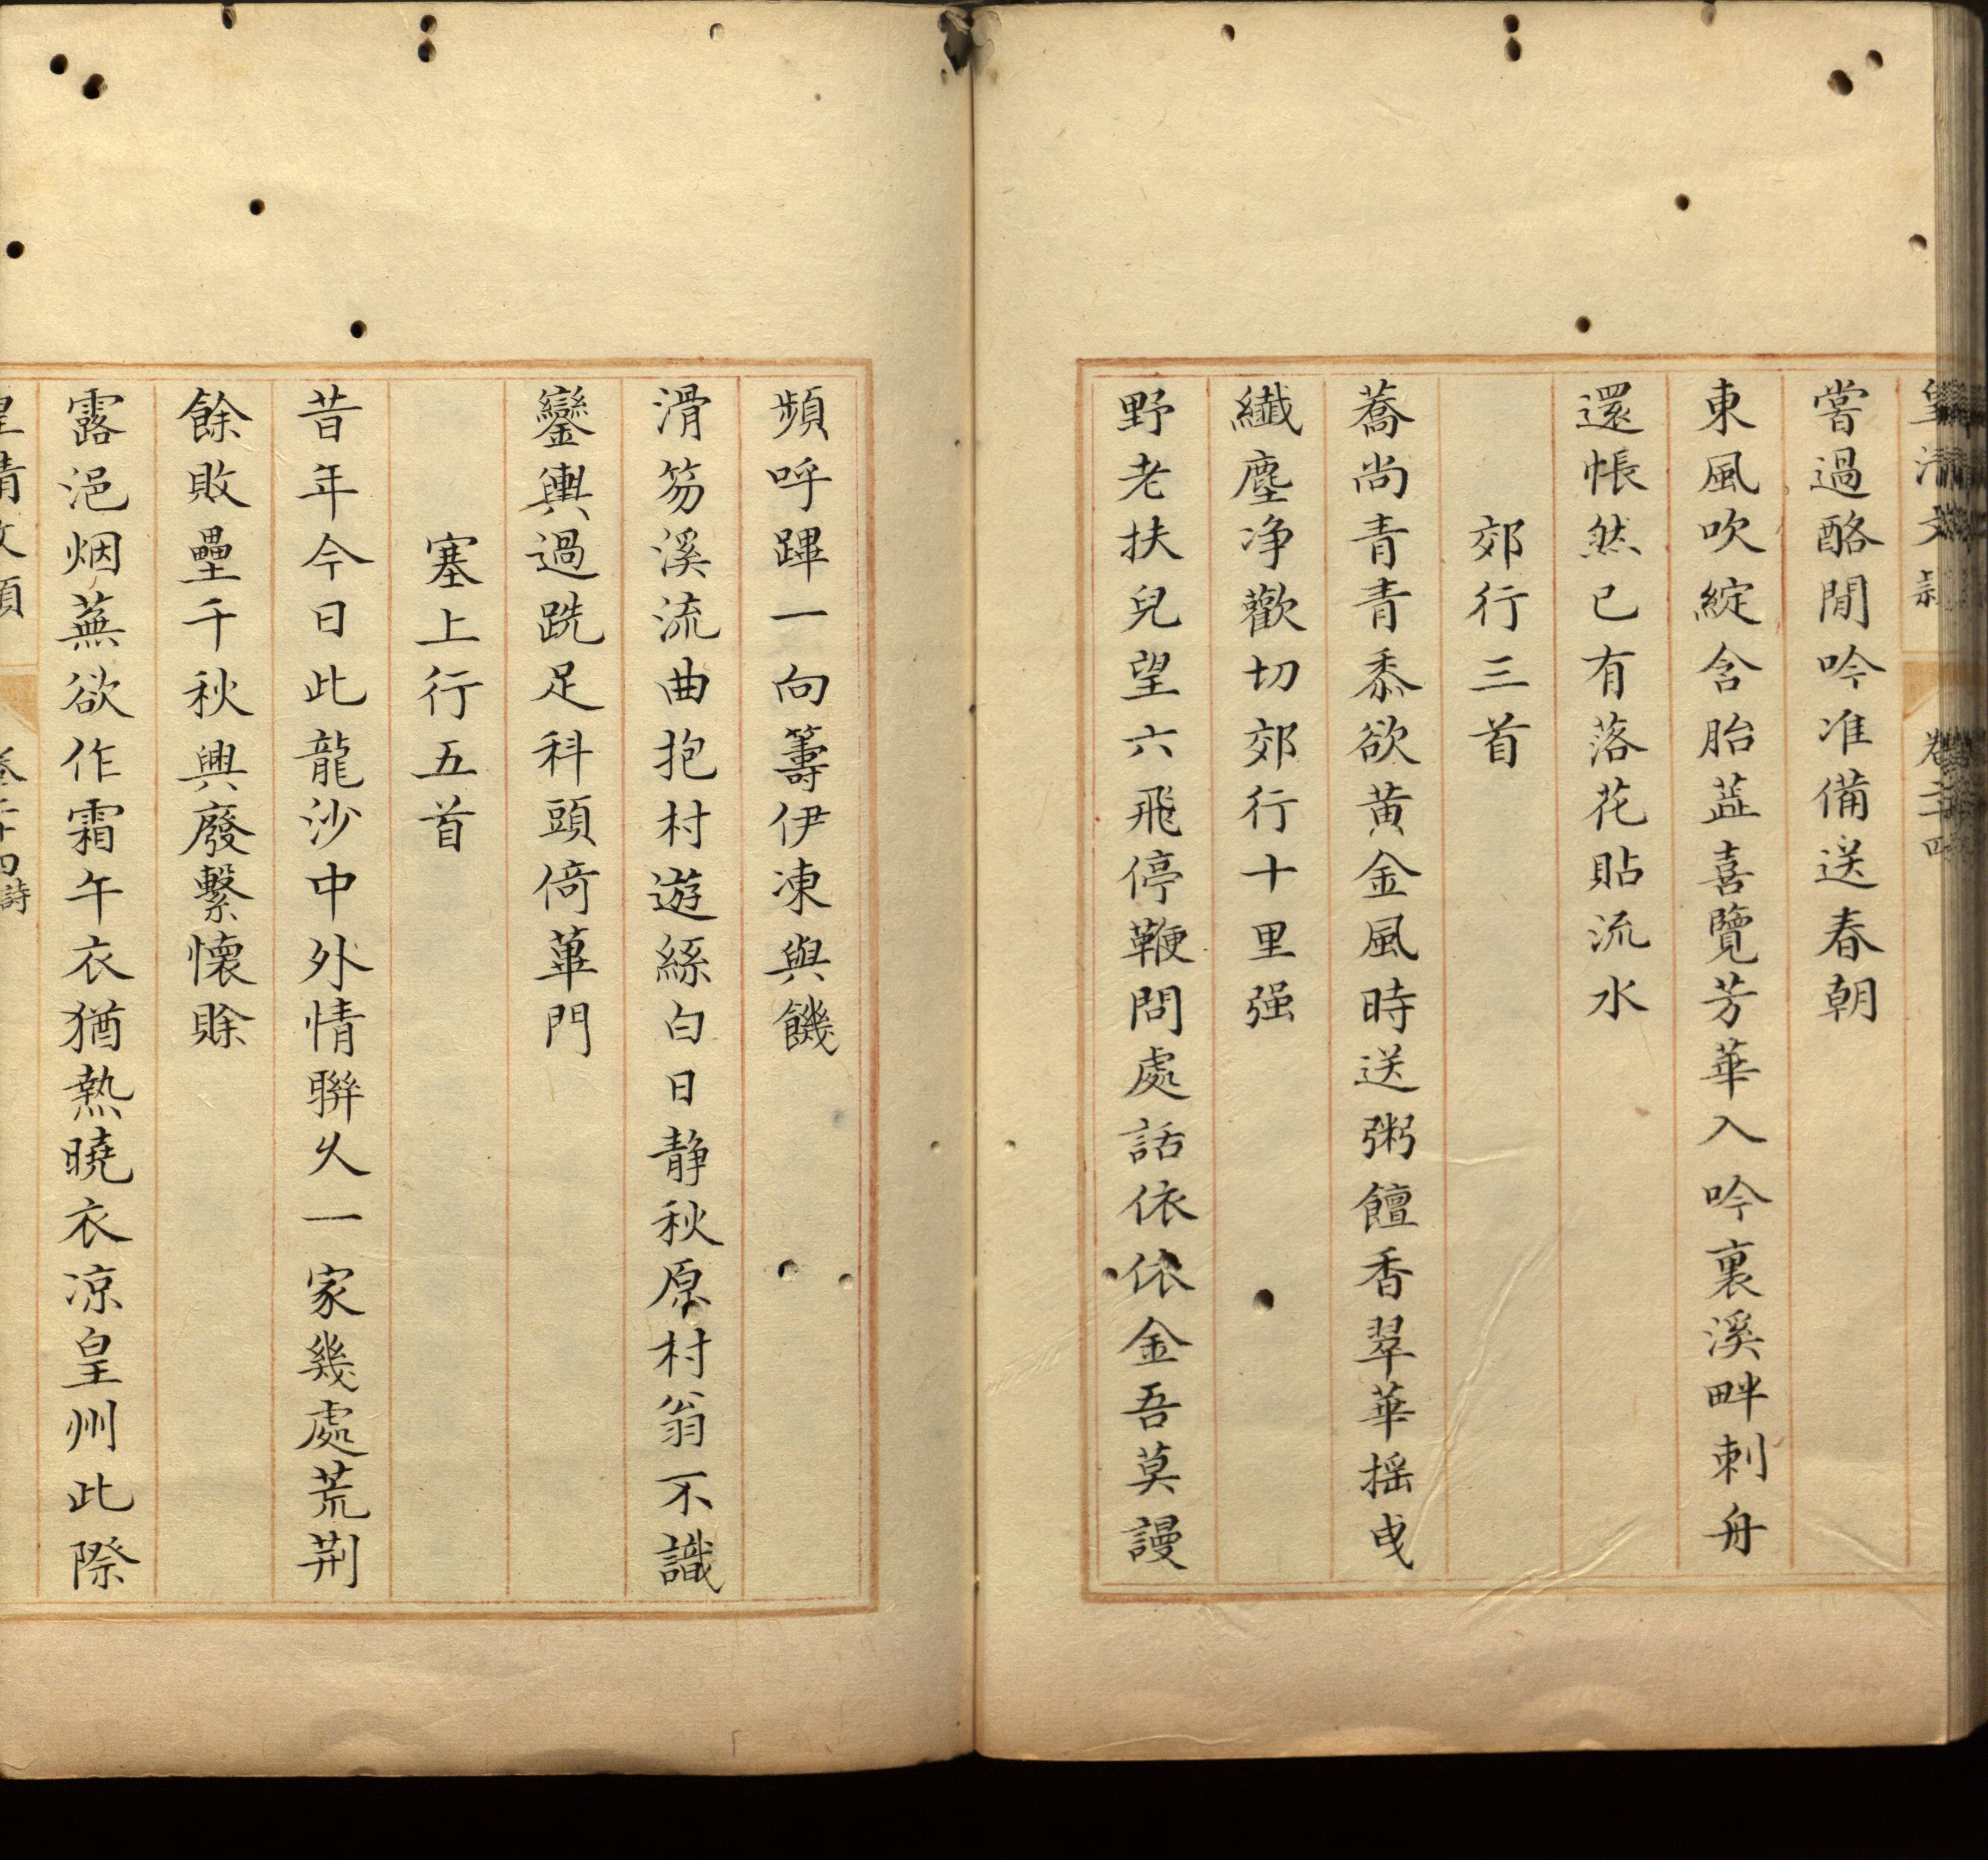 皇清文穎 卷二十四
嘗過酪閒吟准備送春朝
東風吹綻含胎蕋喜覽芳華入吟裏溪畔刺舟
還悵然已有落花貼流水
郊行三首
蕎尚青青黍欲黄金風時送粥饘香翠華揺曵
纎塵净歡切郊行十里强
野老扶兒望六飛停鞭問處話依依金吾莫謾
頻呼蹕一向籌伊凍與饑
滑笏溪流曲抱村遊絲白日静秋原村翁不識
鑾輿過跣足科頭倚蓽門
塞上行五首
昔年今日此龍沙中外情聯乆一家幾處荒荆
餘敗壘千秋興廢繫懷賒
露浥烟蕪欲作霜午衣猶熱曉衣凉皇州此際
皇清文穎 卷二十四詩